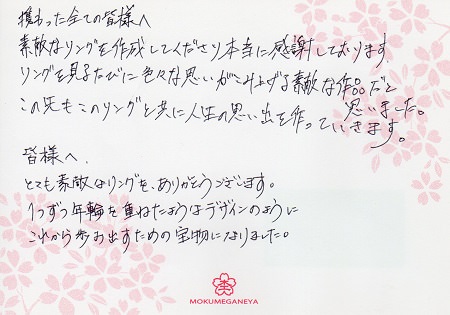 携わった全ての皆様へ
素敵なリングを作成してくださり本当に感謝しております
リングを見るたびに色々な思いがこみ上げる素敵な作品だと
思いました。
この先もこのリングと共に人生の思い出を作っていきます。
皆様へ、
とても素敵なリングを、ありがとうございます。
1つずつ年輪を重ねたようなデザインのように
これから歩み出すための宝物になりました。
MOKUMEGANEYA